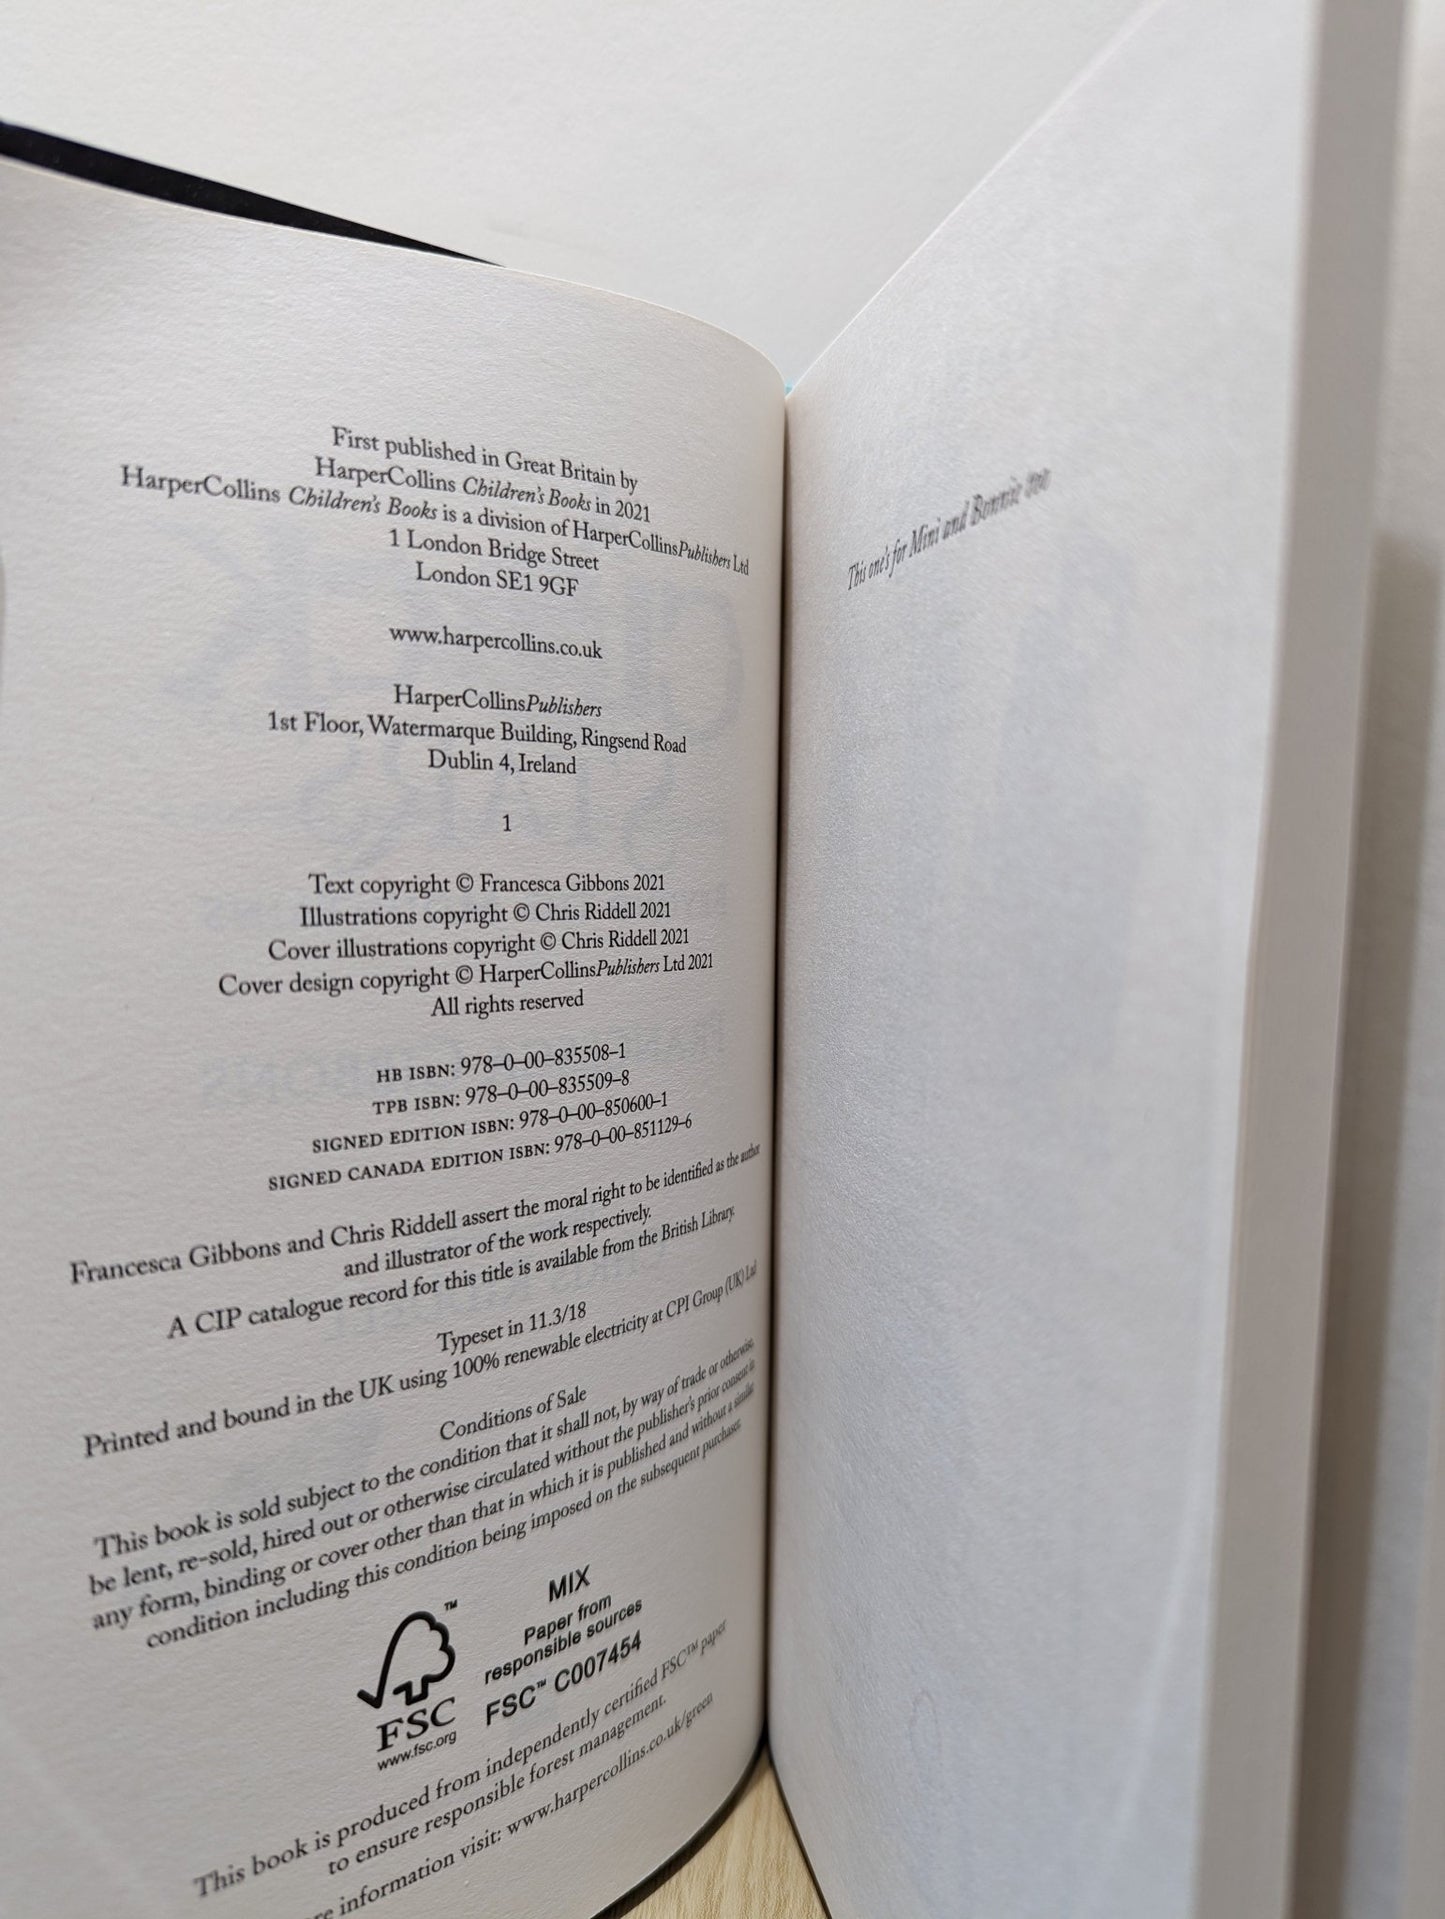 First published in Great Britain by
HarperCollins Children's Books in 2021
HarperCollins Children's Books is a division of HarperCollinsPublishers Ltd
1 London Bridge Street
London SE1 9GF
www.harpercollins.co.uk
HarperCollinsPublishers
1st Floor, Watermarque Building, Ringsend Road
Dublin 4, Ireland
1
Text copyright © Francesca Gibbons 2021
Illustrations copyright © Chris Riddell 2021
Cover illustrations copyright © Chris Riddell 2021
Cover design copyright © HarperCollinsPublishers Ltd 2021
All rights reserved
HB ISBN: 978–0–00–835508–1
TPB ISBN: 978–0–00–835509–8
SIGNED EDITION ISBN: 978–0–00–850600–1
SIGNED CANADA EDITION ISBN: 978–0–00–851129–6
Francesca Gibbons and Chris Riddell assert the moral right to be identified as the author
and illustrator of the work respectively.
A CIP catalogue record for this title is available from the British Library.
Typeset in 11.3/18
Printed and bound in the UK using 100% renewable electricity at CPI Group (UK) Ltd
Conditions of Sale
This book is sold subject to the condition that it shall not, by way of trade or otherwise,
be lent, re-sold, hired out or otherwise circulated without the publisher's prior consent in
any form, binding or cover other than that in which it is published and without a similar
condition including this condition being imposed on the subsequent purchaser.
FSC
www.fsc.org
™
MIX
Paper from
responsible sources
FSC™ C007454
This book is produced from independently certified FSC™ paper
to ensure responsible forest management.
information visit: www.harpercollins.co.uk/green
This one's for Mini and Bonnie too